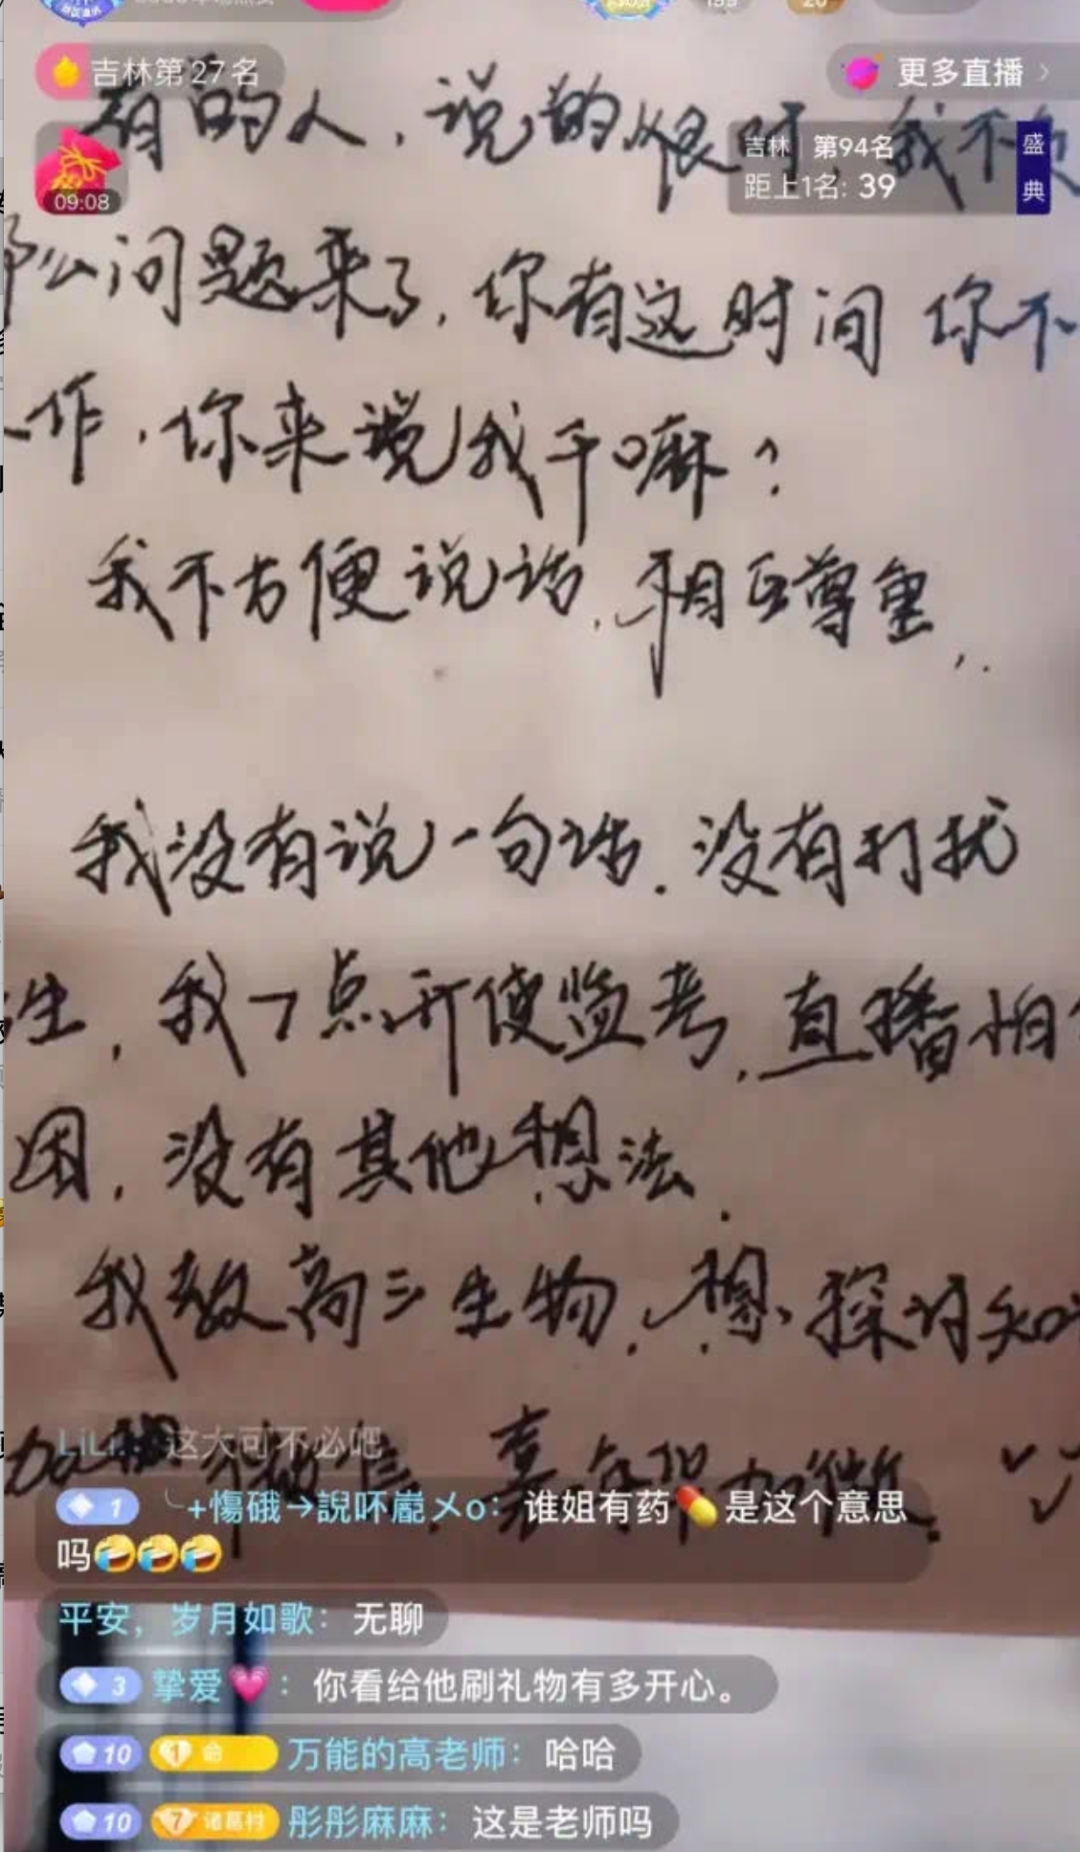 吉林第27名
更多直播
有的人，说的很对，我不负
吉林 第94名
距上1名: 39
盛典
09:08
那么问题来了，你有这时间 你不
作，你来说我干嘛？
我不方便说话，相互尊重，..
我没有说一句话．没有打扰
生，我了点开使监考，直播怕
困，没有其他想法．
我教高三生物，想探讨知
LiLi 这大可不必吧
1 ╰+慯硪→誽吥 メo：谁姐有药💊是这个意思
吗🤣🤣🤣
平安，岁月如歌：无聊
3 挚爱💗：你看给他刷礼物有多开心。
10 1 命 万能的高老师：哈哈
10 7 诸葛村 彤彤麻麻：这是老师吗